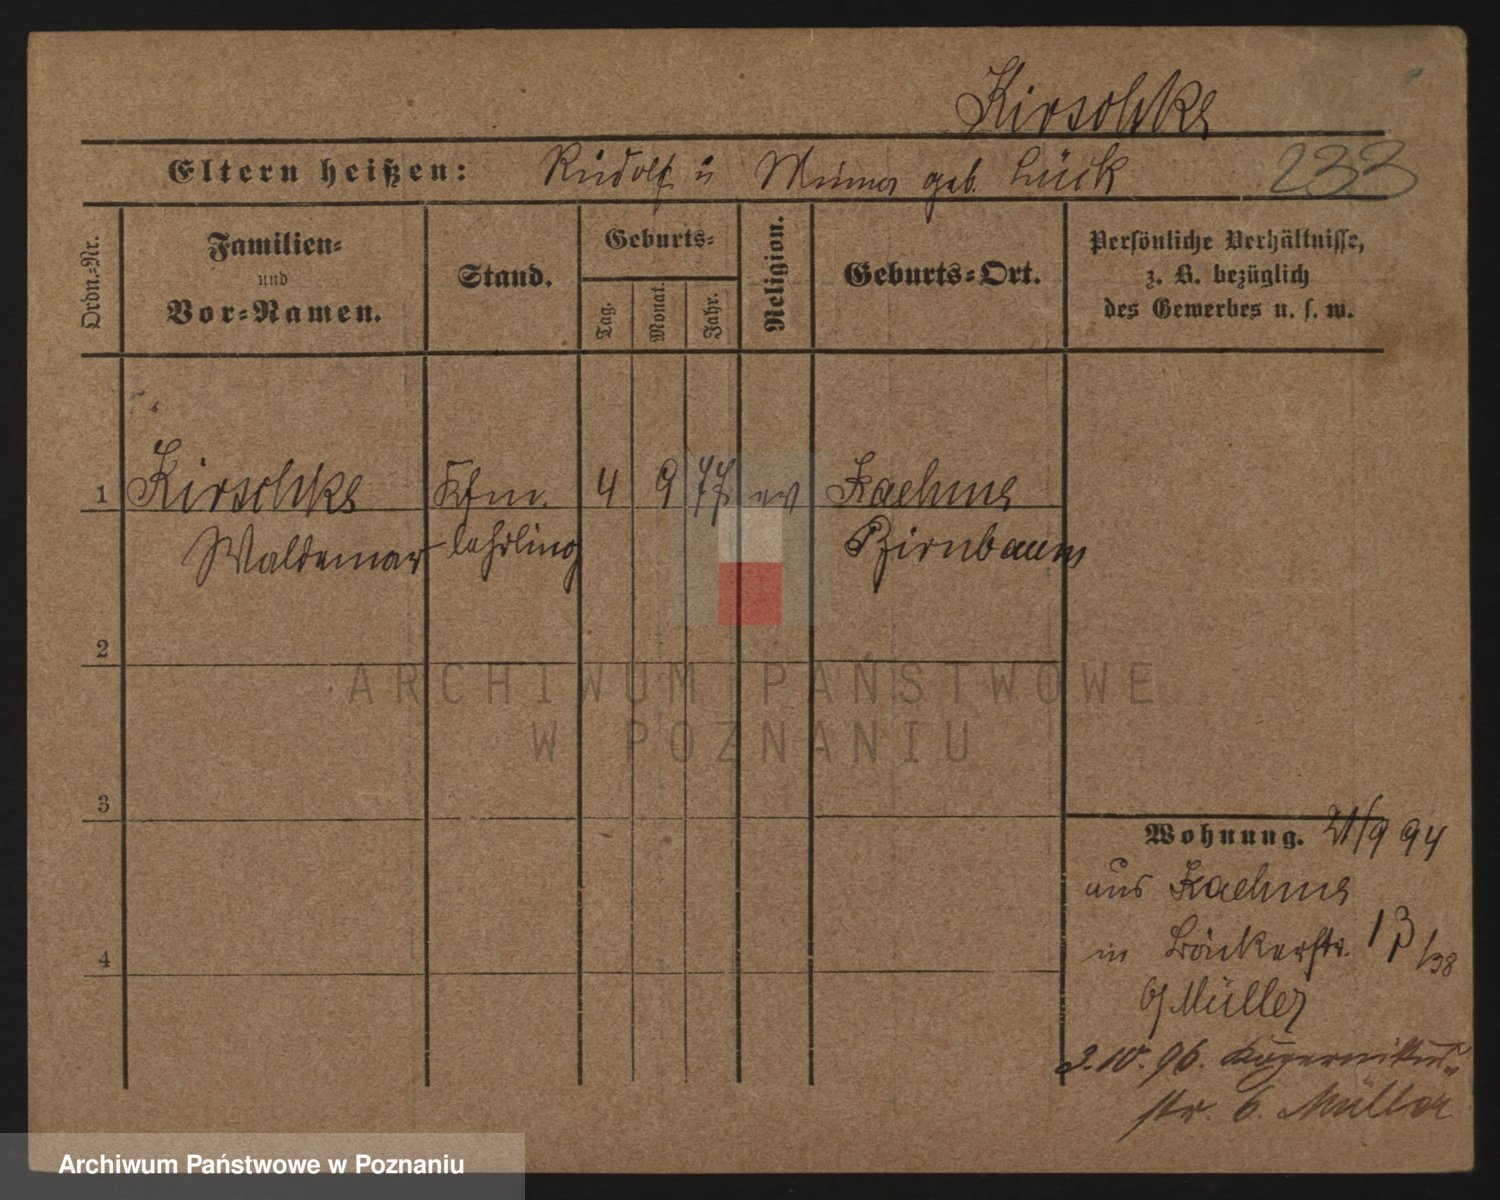 Kirschke
Eltern heißen: Rudolf u Minna geb. Lück 233
Ordn.-Nr.
Familien-
und
Vor-Namen.
Stand.
Geburts-
Tag.
Monat.
Jahr.
Religion.
Geburts-Ort.
Persönliche Verhältnisse,
z. B. bezüglich
des Gewerbes u. s. w.
1 Kirschke Kfm. 4 9 77 ev Kaehme
Waldemar lehrling Birnbaum
2
3
4
Wohnung. 21/9 94
aus Kaehme
in Bäckerstr. 13/38
b/ Müller
3.10.96. Kopernikus-
str. 6. Müller
ARCHIWUM PAŃSTWOWE
W POZNANIU
Archiwum Państwowe w Poznaniu